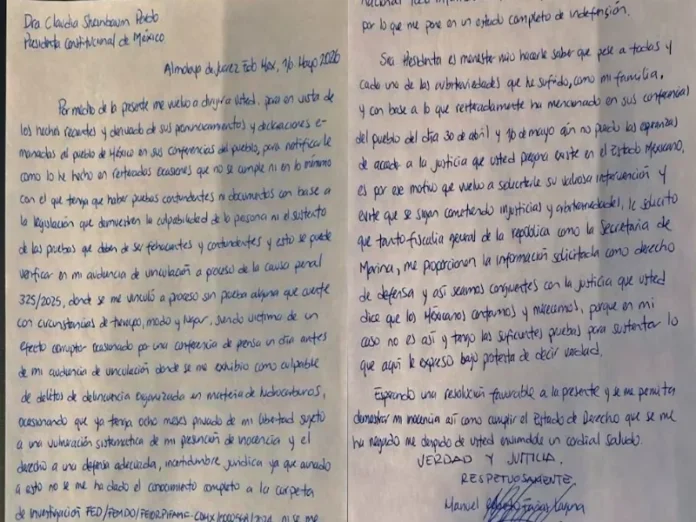 Dra Claudia Sheinbaum Pardo
Presidenta Constitucional de México
Almoloya de Juarez Edo Mex, 16 Mayo 2026
Por medio de la presente me vuelvo a dirigir a Usted, pero en vista de
los hechos recientes y derivado de sus pronunciamientos y declaraciones e-
manadas al pueblo de México en sus conferencias del pueblo, para notificarle
como lo he hecho en reiteradas ocasiones que no se cumple ni en lo mínimo
con el que tenga que haber pruebas contundentes ni documentos con base a
la legislación que demuestren la culpabilidad de la persona ni el sustento
de las pruebas que deben de ser fehacientes y contundentes y esto se puede
verificar en mi audiencia de vinculación a proceso de la causa penal
325/2025, donde se me vinculó a proceso sin prueba alguna que cuente
con circunstancias de tiempo, modo y lugar, siendo victima de un
efecto corruptor ocasionado por una conferencia de prensa un día antes
de mi audiencia de vinculación donde se me exhibió como culpable
de delitos de delincuencia organizada en materia de hidrocarburos,
ocasionando que ya tenga ocho meses privado de mi libertad sujeto
a una vulneración sistematica de mi presunción de inocencia y el
derecho a una defensa adecuada, incertidumbre jurídica ya que aunado
a esto no se me ha dado el conocimiento completo a la carpeta
de investigación ni se me
por lo que me pone en un estado completo de indefensión.
Sra Presidenta es menester mío hacerle saber que pese a todas y
cada una de las arbitrariedades que he sufrido, como mi familia,
y con base a lo que reiteradamente ha mencionado en sus conferencias
del pueblo del día 30 de abril y 16 de mayo aún no pierdo las esperanzas
de acceder a la justicia que usted pregona existe en el Estado Mexicano,
es por ese motivo que vuelvo a solicitarle su valiosa intervención y
evite que se sigan cometiendo injusticias y arbitrariedades, le solicito
que tanto fiscalia general de la republica como la Secretaria de
Marina, me proporcionen la información solicitada como derecho
de defensa y así seamos conjuentes con la justicia que usted
dice que los Méxicanos contamos y merecemos, porque en mi
caso no es así y tengo las suficientes pruebas para sustentar lo
que aquí le expreso bajo protesta de decir verdad.
Esperando una resolución favorable a la presente y se me permita
demostrar mi inocencia así como cumplir el Estado de Derecho que se me
ha negado me despido de usted enviandole un cordial saludo.
VERDAD Y JUSTICIA.
RESPETUOSAMENTE.
Manuel Laguna